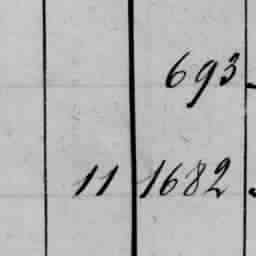 693
11 1682